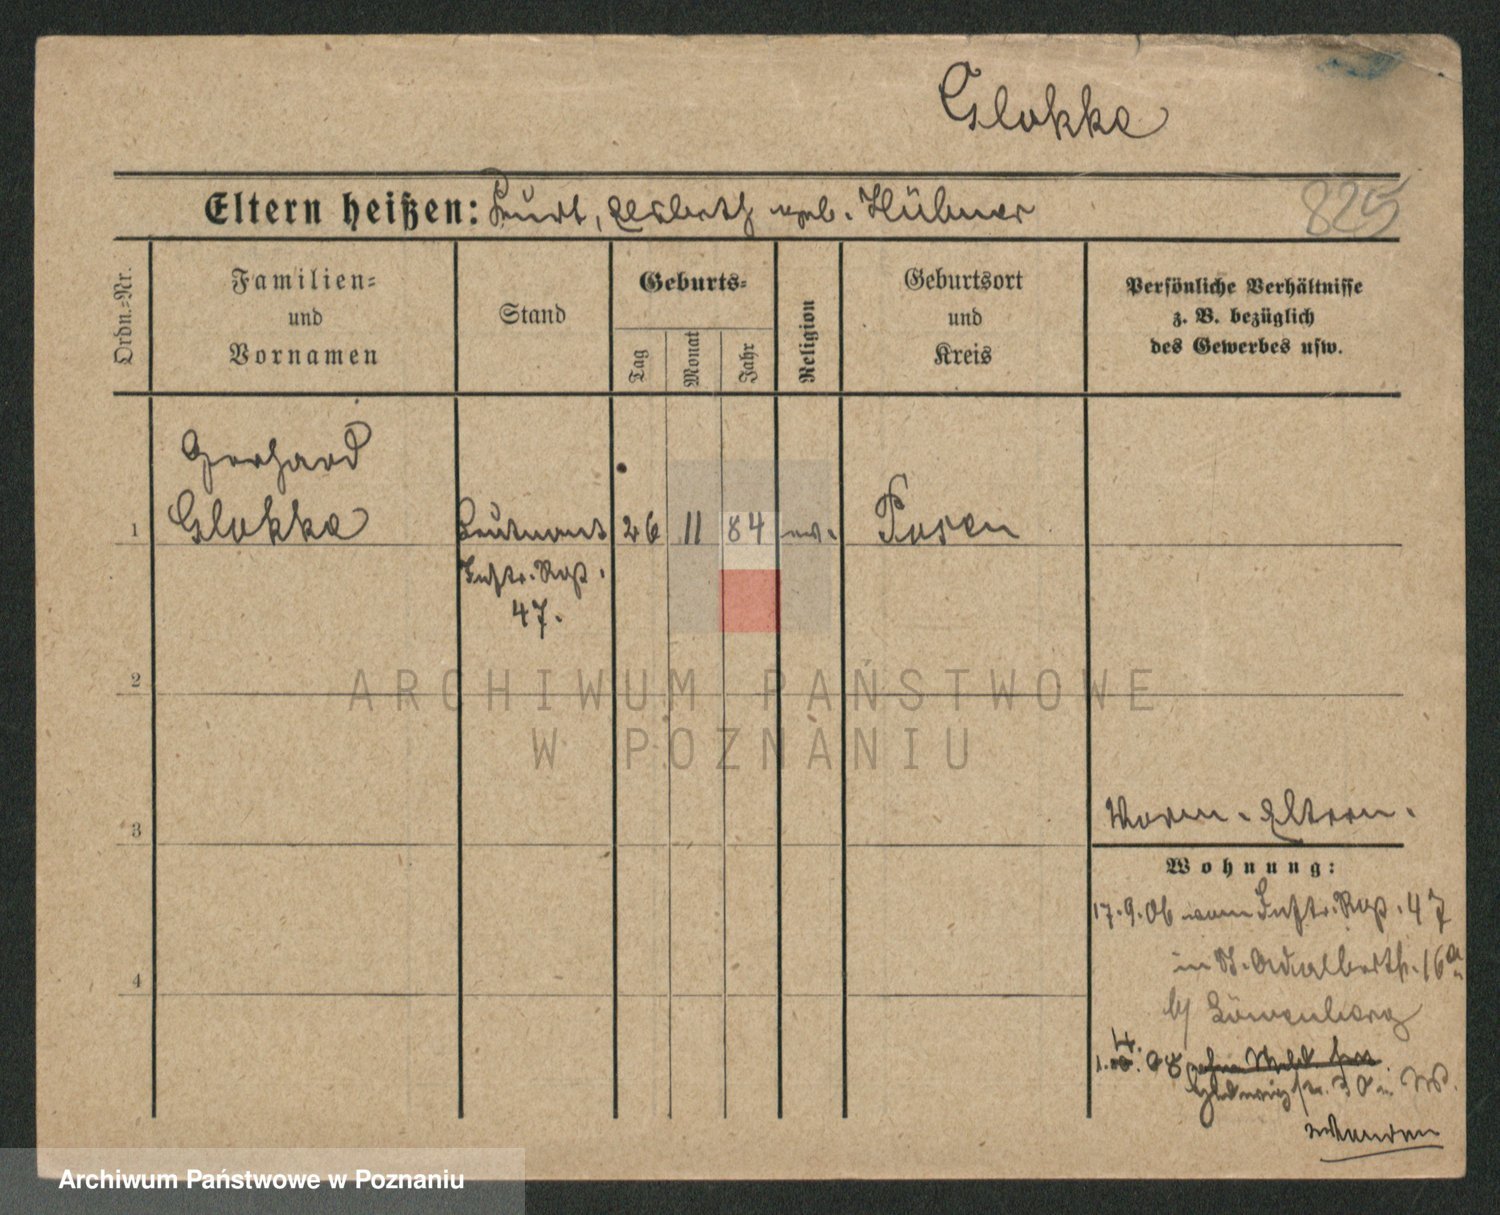 Glokke
Eltern heißen: Kurt, Elsbeth geb. Hübner
825
Ordn.-Nr.
Familien-
und
Vornamen
Stand
Geburts-
Tag
Monat
Jahr
Religion
Geburtsort
und
Kreis
Persönliche Verhältnisse
z. B. bezüglich
des Gewerbes usw.
Gerhard
1 Glokke Leutnant 26 11 84 ev. Posen
Inftr. Regt.
47.
2
ARCHIWUM PAŃSTWOWE
W POZNANIU
Worm. Eltern.
3
Wohnung:
17.9.06 vom Inftr. Regt. 47
4
in St. Adalbertstr. 16a
b/ Löwenberg
4.
1. 08
30
wenden
Archiwum Państwowe w Poznaniu